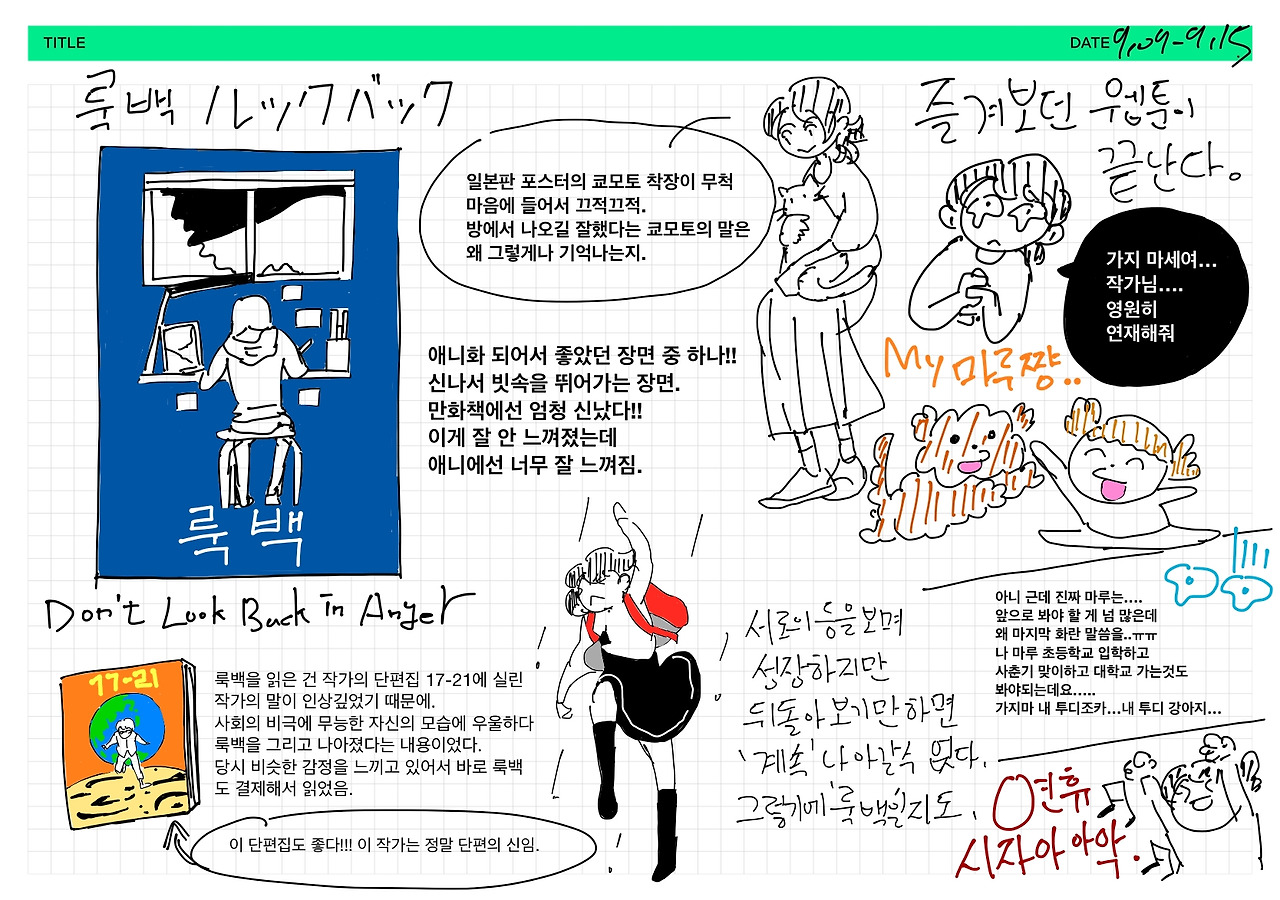 TITLE
DATE 9.09-9.15
룩백 ルックバック
일본판 포스터의 쿄모토 착장이 무척
마음에 들어서 끄적끄적.
방에서 나오길 잘했다는 쿄모토의 말은
왜 그렇게나 기억나는지.
애니화 되어서 좋았던 장면 중 하나!!
신나서 빗속을 뛰어가는 장면.
만화책에선 엄청 신났다!!
이게 잘 안 느껴졌는데
애니에선 너무 잘 느껴짐.
룩백
Don't Look Back in Anger
17-21
룩백을 읽은 건 작가의 단편집 17-21에 실린
작가의 말이 인상깊었기 때문에.
사회의 비극에 무능한 자신의 모습에 우울하다
룩백을 그리고 나아졌다는 내용이었다.
당시 비슷한 감정을 느끼고 있어서 바로 룩백
도 결제해서 읽었음.
이 단편집도 좋다!!! 이 작가는 정말 단편의 신임.
서로의 등을 보며
성장하지만
뒤돌아보기만 하면
'계속' 나아갈 수 없다.
그렇기에 '룩백'일지도.
즐겨보던 웹툰이
끝난다.
가지 마세여...
작가님....
영원히
연재해줘
My 마루쨩..
아니 근데 진짜 마루는....
앞으로 봐야 할 게 넘 많은데
왜 마지막 화란 말씀을..ㅠㅠ
나 마루 초등학교 입학하고
사춘기 맞이하고 대학교 가는것도
봐야되는데요.....
가지마 내 투디조카...내 투디 강아지...
연휴
시자아아악.